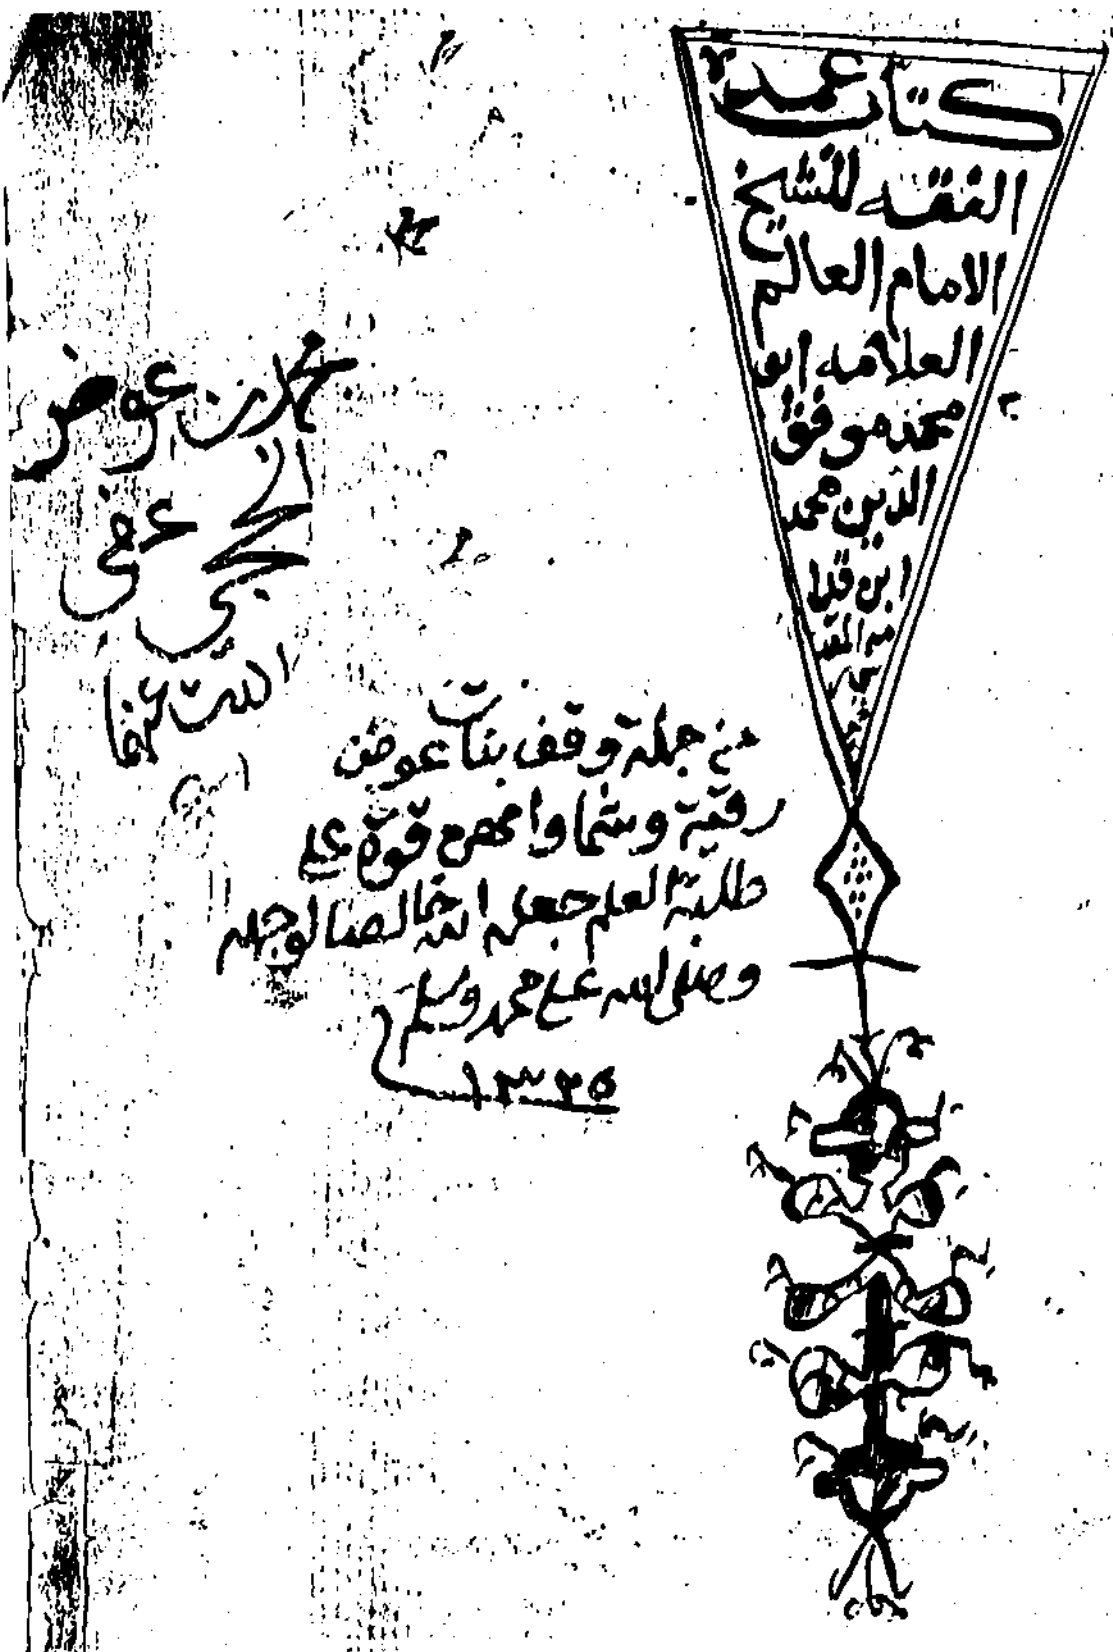 كتاب عمدة
الفقه للشيخ
الامام العالم
العلامه ابو
محمد موفق
الدين محمد
ابن قدا
مه المقد
سي
محمد بن عوض
الحجي عفى
الله عنهما
من جملة وقف بنات عوض
رقية وشما وا قوة على
طلبة العلم جعله الله خالصا لوجهه
وصلى الله على محمد وسلم
١٣٣٥